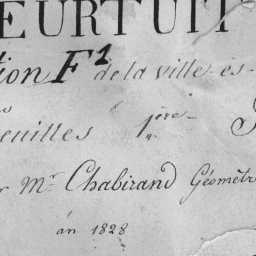 EURTUIT
ion F¹ de la ville es-
euilles 1ère
r Mr Chabirand Géomètr
án 1828